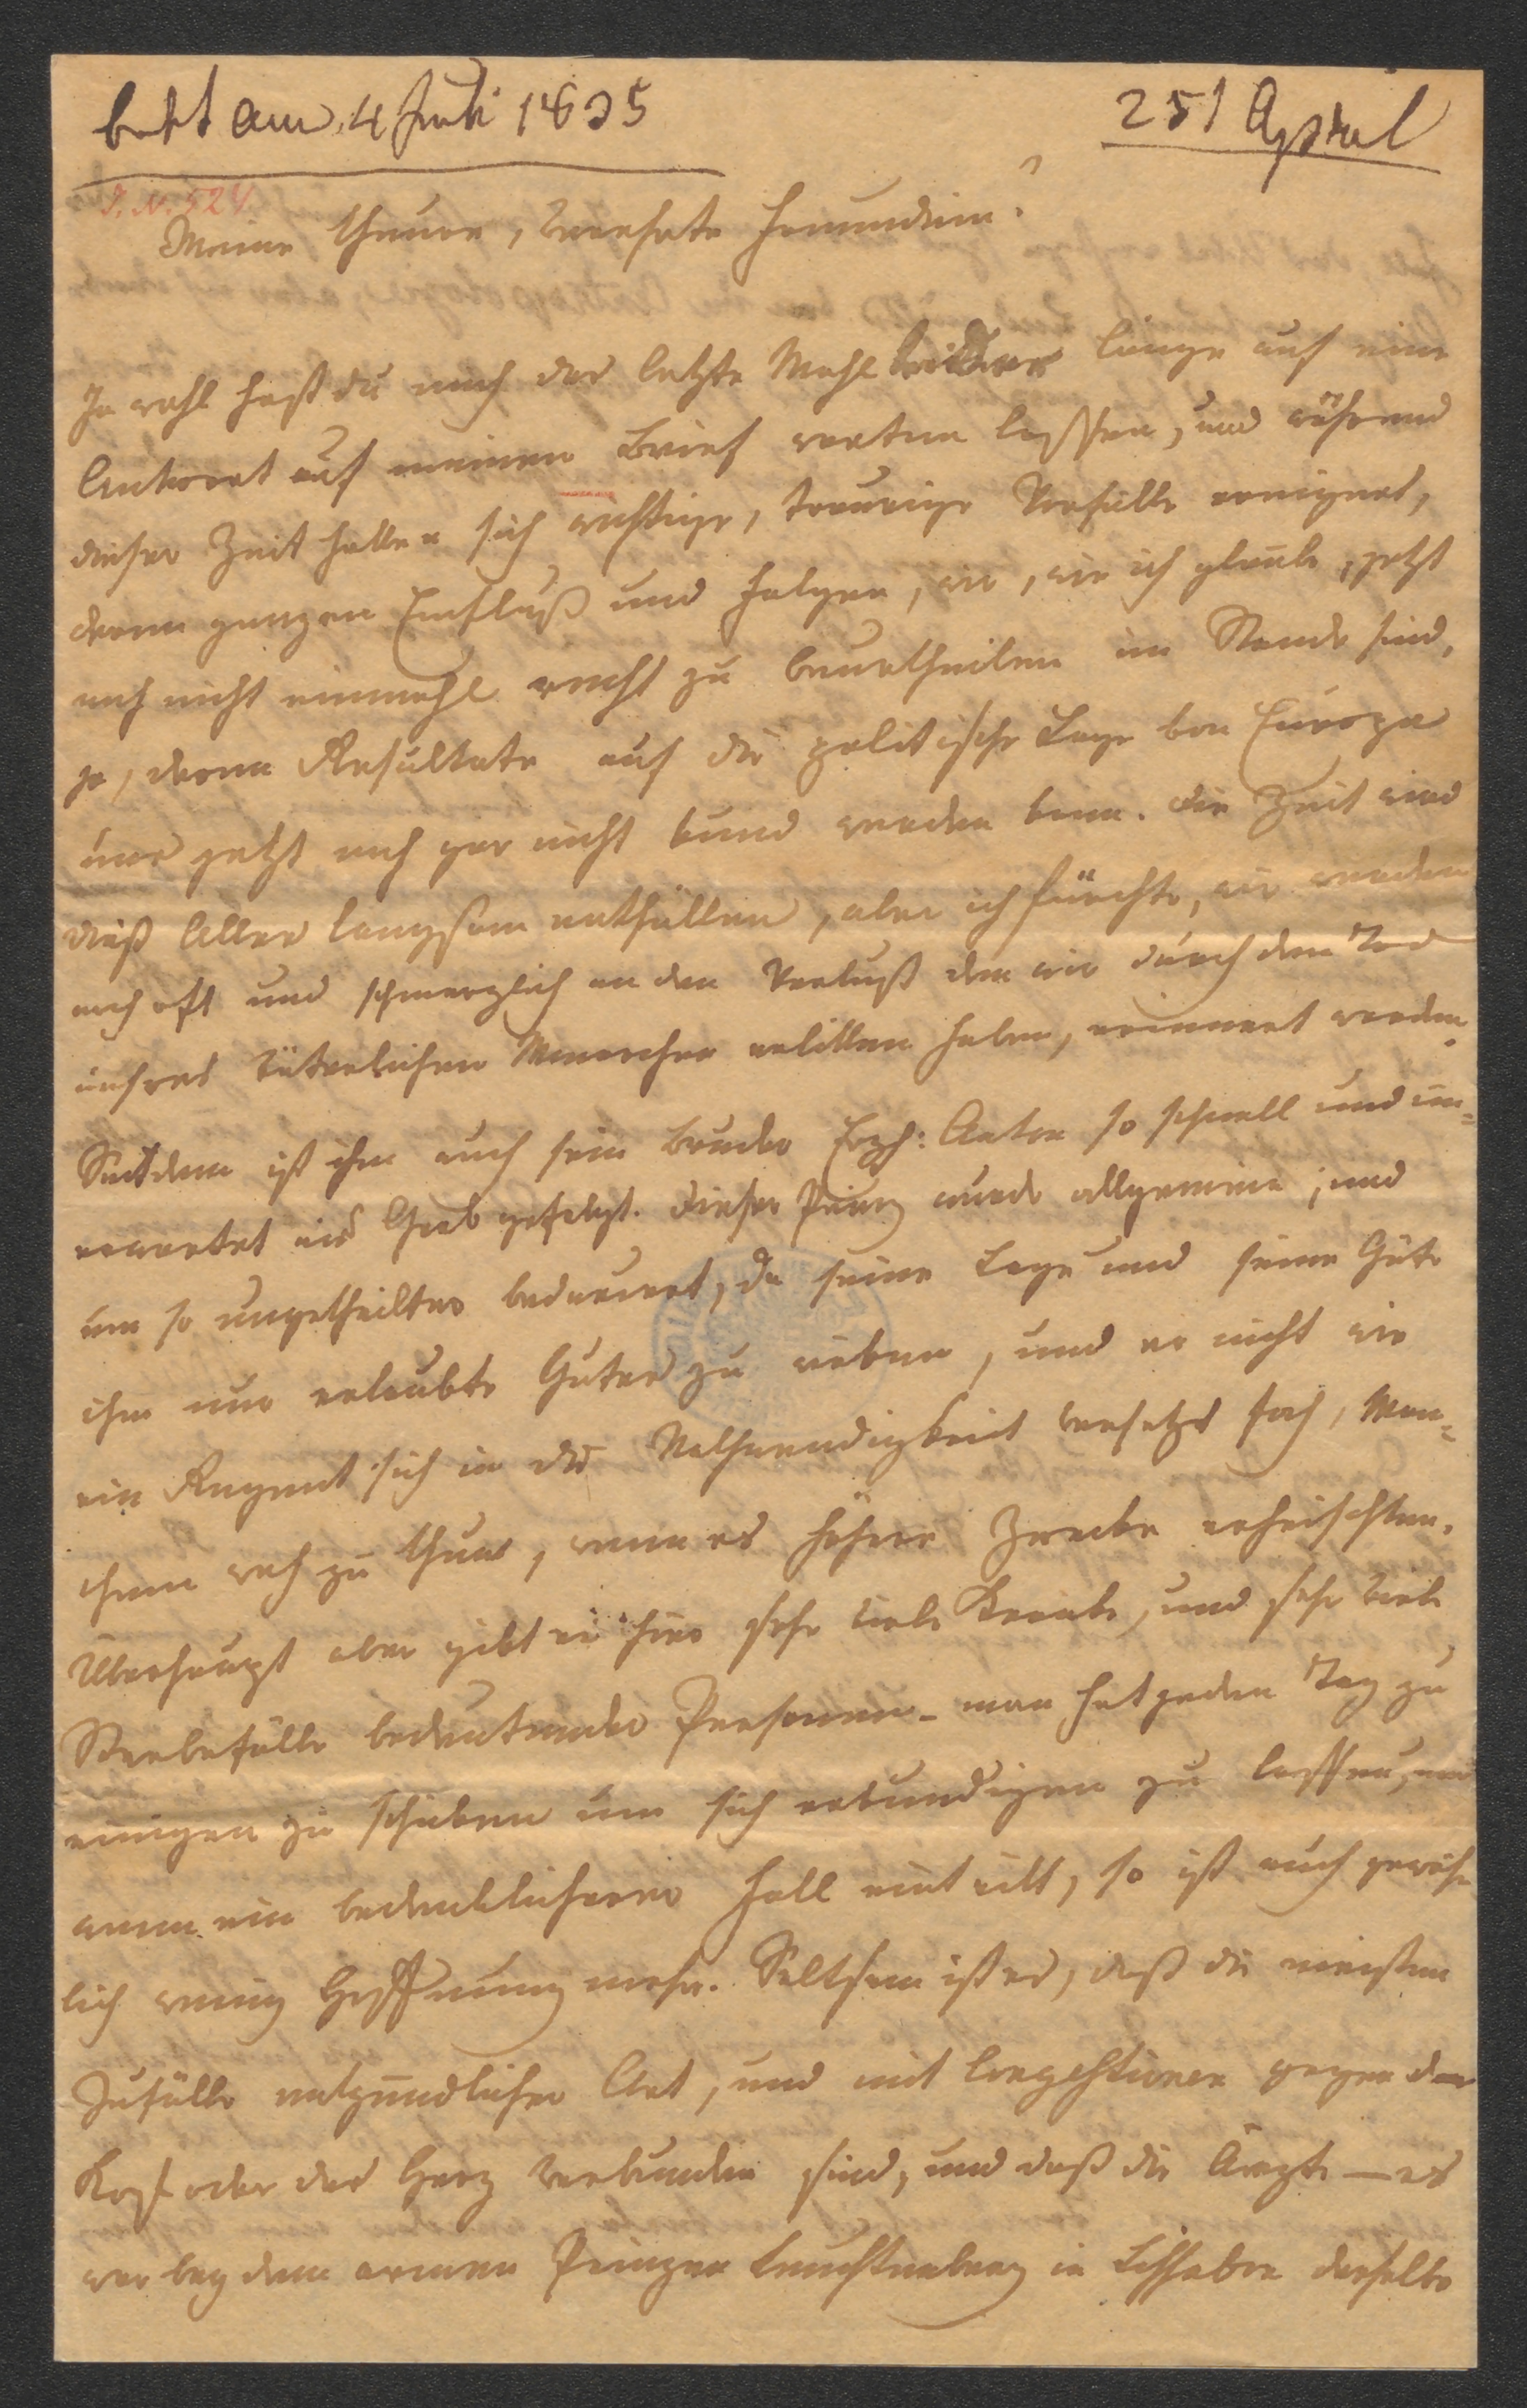 betl am 4 Juli 1835
251 Apral
I. N. 524
Meine theure, verehrte Freundin!
Ja wohl hast du mich das letzte Mahl wieder lange auf eine
Antwort auf meinen Brief warten lassen, und während
dieser Zeit haben sich wichtige, traurige Vorfälle ereignet,
deren ganzen Einfluß und Folgen, wir, wie ich glaube, jetzt
noch nicht einmahl recht zu beurtheilen im Stande sind,
ja, deren Resultate auf die politische Lage von Europa
uns jetzt noch gar nicht kund werden kann. Die Zeit wird
dieß Alles langsam enthüllen, aber ich fürchte, wir werden
noch oft und schmerzlich an den Verlust den wir durch den Tod
unsres väterlichen Monarchen erlitten haben, erinnert werden.
Seitdem ist ihm auch sein Bruder Erzh: Anton so schnell und un=
erwartet ins Grab gefolgt. Dieser Prinz wurde allgemein, und
um so ungetheilter bedauert, da seine Lage und seine Güte
ihm nur erlaubte Gutes zu üben, und er nicht wie
ein Regent sich in die Nothwendigkeit versetzt sah, Man=
chem weh zu thun, wenn es höhere Zwecke erheischten.
Überhaupt aber gibt es hier sehr viele Kranke, und sehr viele
Sterbefälle bedeutender Personen – man hat jeden Tag zu
einigen zu schicken um sich erkundigen zu lassen, und
wenn ein bedenklicherer Fall eintritt, so ist auch gewöhn
lich wenig Hoffnung mehr. Seltsam ist es, daß die meisten
Zufälle entzündlicher Art, und mit Congestionen gegen den
Kopf oder das Herz verbunden sind, und daß die Ärzte — es
war bey dem armen Prinzen Leuchtenberg in Lissabon derselbe